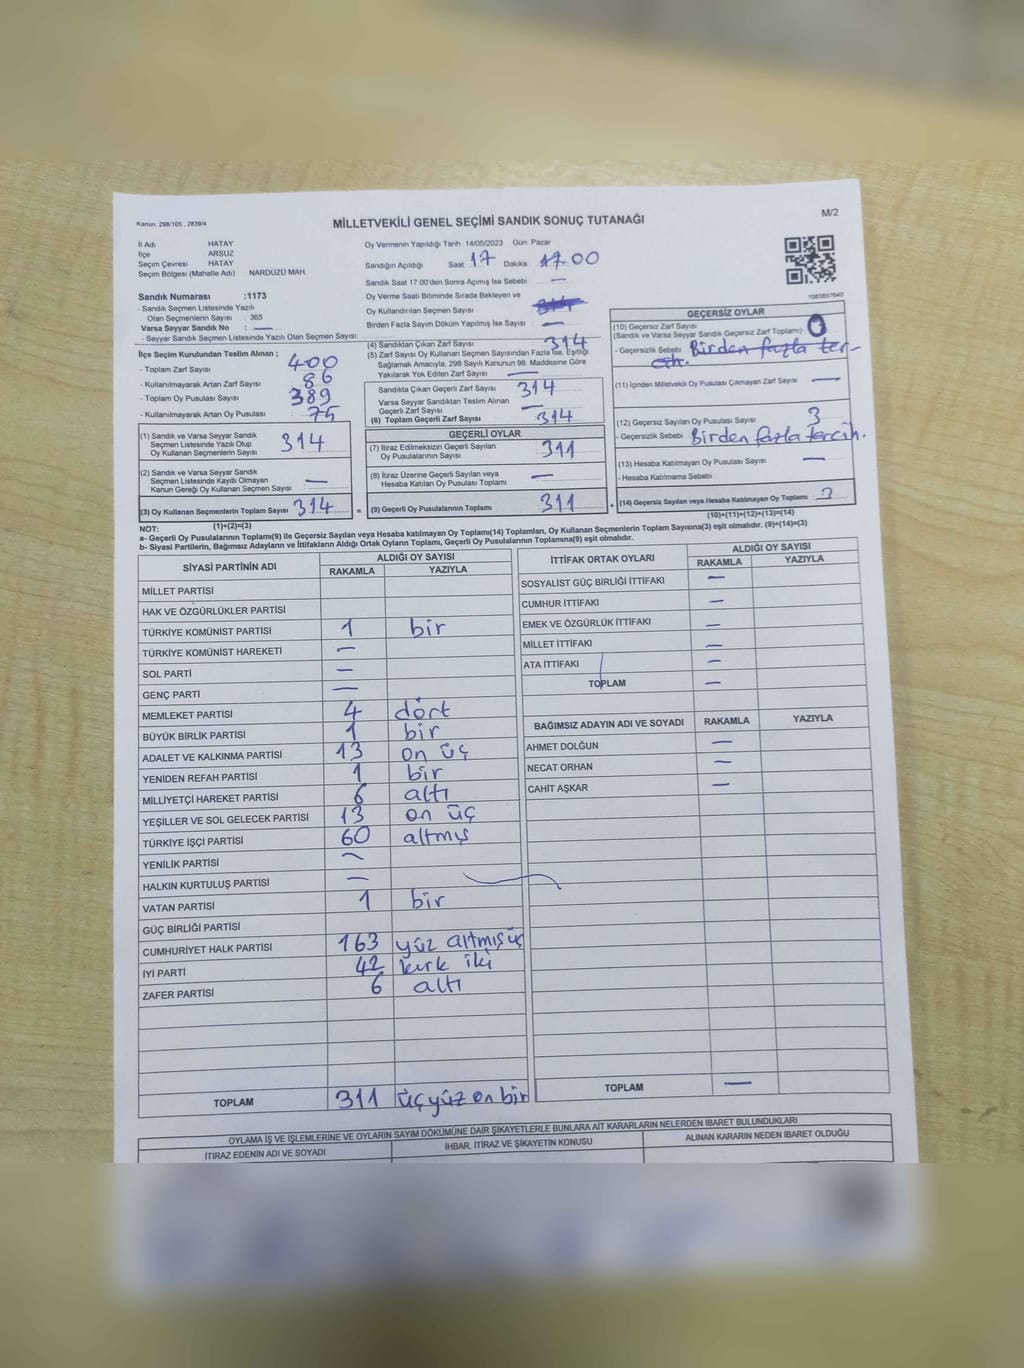 Kanun; 298/105 , 2839/4
MİLLETVEKİLİ GENEL SEÇİMİ SANDIK SONUÇ TUTANAĞI
M/2
İl Adı HATAY
İlçe ARSUZ
Seçim Çevresi HATAY
Seçim Bölgesi (Mahalle Adı) NARDÜZÜ MAH.
Sandık Numarası :1173
- Sandık Seçmen Listesinde Yazılı
Olan Seçmenlerin Sayısı : 365
Varsa Seyyar Sandık No : —
- Seyyar Sandık Seçmen Listesinde Yazılı Olan Seçmen Sayısı:
Oy Vermenin Yapıldığı Tarih :14/05/2023 Gün: Pazar
Sandığın Açıldığı Saat 17 Dakika 17.00
Sandık Saat 17:00'den Sonra Açımış İse Sebebi —
Oy Verme Saati Bitiminde Sırada Bekleyen ve
Oy Kullandırılan Seçmen Sayısı 314
Birden Fazla Sayım Döküm Yapılmış İse Sayısı : —
1083857640
İlçe Seçim Kurulundan Teslim Alınan ;
- Toplam Zarf Sayısı : 400
- Kullanılmayarak Artan Zarf Sayısı : 86
- Toplam Oy Pusulası Sayısı : 389
- Kullanılmayarak Artan Oy Pusulası : 75
(1) Sandık ve Varsa Seyyar Sandık
Seçmen Listesinde Yazılı Olup
Oy Kullanan Seçmenlerin Sayısı : 314
(2) Sandık ve Varsa Seyyar Sandık
Seçmen Listesinde Kayıtlı Olmayan
Kanun Gereği Oy Kullanan Seçmen Sayısı : —
(3) Oy Kullanan Seçmenlerin Toplam Sayısı : 314
(4) Sandıktan Çıkan Zarf Sayısı : 314
(5) Zarf Sayısı Oy Kullanan Seçmen Sayısından Fazla İse, Eşitliği
Sağlamak Amacıyla; 298 Sayılı Kanunun 98. Maddesine Göre
Yakılarak Yok Edilen Zarf Sayısı : —
Sandıkta Çıkan Geçerli Zarf Sayısı : 314
Varsa Seyyar Sandıktan Teslim Alınan
Geçerli Zarf Sayısı :
(6) Toplam Geçerli Zarf Sayısı : 314
GEÇERLİ OYLAR
(7) İtiraz Edilmeksizin Geçerli Sayılan
Oy Pusulalarının Sayısı : 311
(8) İtiraz Üzerine Geçerli Sayılan veya
Hesaba Katılan Oy Pusulası Toplamı : —
(9) Geçerli Oy Pusulalarının Toplamı : 311
GEÇERSİZ OYLAR
(10) Geçersiz Zarf Sayısı
(Sandık ve Varsa Seyyar Sandık Geçersiz Zarf Toplamı) : 0
- Geçersizlik Sebebi : Birden fazla ter-
cih.
(11) İçinden Milletvekili Oy Pusulası Çıkmayan Zarf Sayısı : —
(12) Geçersiz Sayılan Oy Pusulası Sayısı : 3
- Geçersizlik Sebebi : Birden fazla tercih.
(13) Hesaba Katılmayan Oy Pusulası Sayısı : —
- Hesaba Katılmama Sebebi
(14) Geçersiz Sayılan veya Hesaba Katılmayan Oy Toplamı : 3
NOT: (1)+(2)=(3)
(10)+(11)+(12)+(13)=(14)
a- Geçerli Oy Pusulalarının Toplamı(9) ile Geçersiz Sayılan veya Hesaba katılmayan Oy Toplamı(14) Toplamları, Oy Kullanan Seçmenlerin Toplam Sayısına(3) eşit olmalıdır. (9)+(14)=(3)
b- Siyasi Partilerin, Bağımsız Adayların ve İttifakların Aldığı Ortak Oyların Toplamı, Geçerli Oy Pusulalarının Toplamına(9) eşit olmalıdır.
SİYASİ PARTİNİN ADI ALDIĞI OY SAYISI
RAKAMLA YAZIYLA
MİLLET PARTİSİ
HAK VE ÖZGÜRLÜKLER PARTİSİ
TÜRKİYE KOMÜNİST PARTİSİ 1 bir
TÜRKİYE KOMÜNİST HAREKETİ —
SOL PARTİ —
GENÇ PARTİ —
MEMLEKET PARTİSİ 4 dört
BÜYÜK BİRLİK PARTİSİ 1 bir
ADALET VE KALKINMA PARTİSİ 13 on üç
YENİDEN REFAH PARTİSİ 1 bir
MİLLİYETÇİ HAREKET PARTİSİ 6 altı
YEŞİLLER VE SOL GELECEK PARTİSİ 13 on üç
TÜRKİYE İŞÇİ PARTİSİ 60 altmış
YENİLİK PARTİSİ —
HALKIN KURTULUŞ PARTİSİ —
VATAN PARTİSİ 1 bir
GÜÇ BİRLİĞİ PARTİSİ
CUMHURİYET HALK PARTİSİ 163 yüz altmış üç
İYİ PARTİ 42 kırk iki
ZAFER PARTİSİ 6 altı
TOPLAM 311 üçyüz on bir
İTTİFAK ORTAK OYLARI ALDIĞI OY SAYISI
RAKAMLA YAZIYLA
SOSYALİST GÜÇ BİRLİĞİ İTTİFAKI —
CUMHUR İTTİFAKI —
EMEK VE ÖZGÜRLÜK İTTİFAKI —
MİLLET İTTİFAKI —
ATA İTTİFAKI —
TOPLAM —
BAĞIMSIZ ADAYIN ADI VE SOYADI RAKAMLA YAZIYLA
AHMET DOLĞUN —
NECAT ORHAN —
CAHİT AŞKAR —
TOPLAM —
OYLAMA İŞ VE İŞLEMLERİNE VE OYLARIN SAYIM DÖKÜMÜNE DAİR ŞİKAYETLERLE BUNLARA AİT KARARLARIN NELERDEN İBARET BULUNDUKLARI
İTİRAZ EDENİN ADI VE SOYADI İHBAR, İTİRAZ VE ŞİKAYETİN KONUSU ALINAN KARARIN NEDEN İBARET OLDUĞU